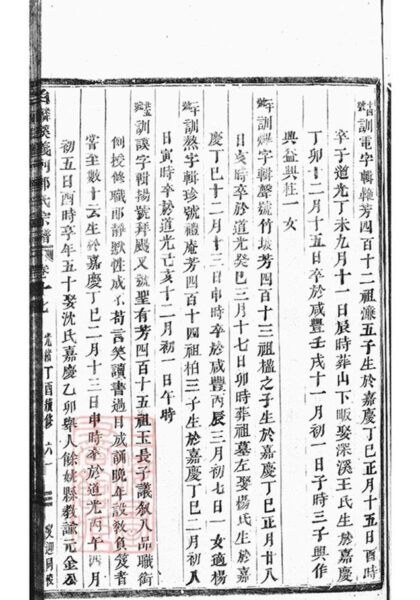 訓電字輯軫芳四百十二祖濂五子生於嘉慶丁巳正月十五日酉時
卒于道光丁未九月十一日辰時葬山下畈娶深溪王氏生於嘉慶
丁卯十二月十五日卒於咸豐壬戌十一月初一日子時三子興作
興益興杜一女
訓 字輯聲號竹坡芳四百十三祖楹之子生於嘉慶丁巳正月廿八
日亥時卒於道光癸巳三月十七日卯時葬祖墓左娶楊氏生於嘉
慶丁巳十二月十三日申時卒於咸豐丙辰三月初七日一女適楊
訓熬字輯珍號禮庵芳四百十四祖柏三子生於嘉慶丁巳二月初八
日寅時卒於道光己亥十二月初一日午時
訓談字輯揚號拜颺又號聖有芳四百十五祖玉長子議敘八品職銜
例授修職郎靜默性成不苟言笑讀書過目成誦晚年設教負笈者
嘗至數十云生於嘉慶丁巳二月十三日申時卒於道光丙午四月
初五日酉時享年五十娶沈氏嘉慶乙卯舉人餘姚縣教諭元金公
麟溪義門鄭氏宗譜 卷十七 光緒丁酉續修 六